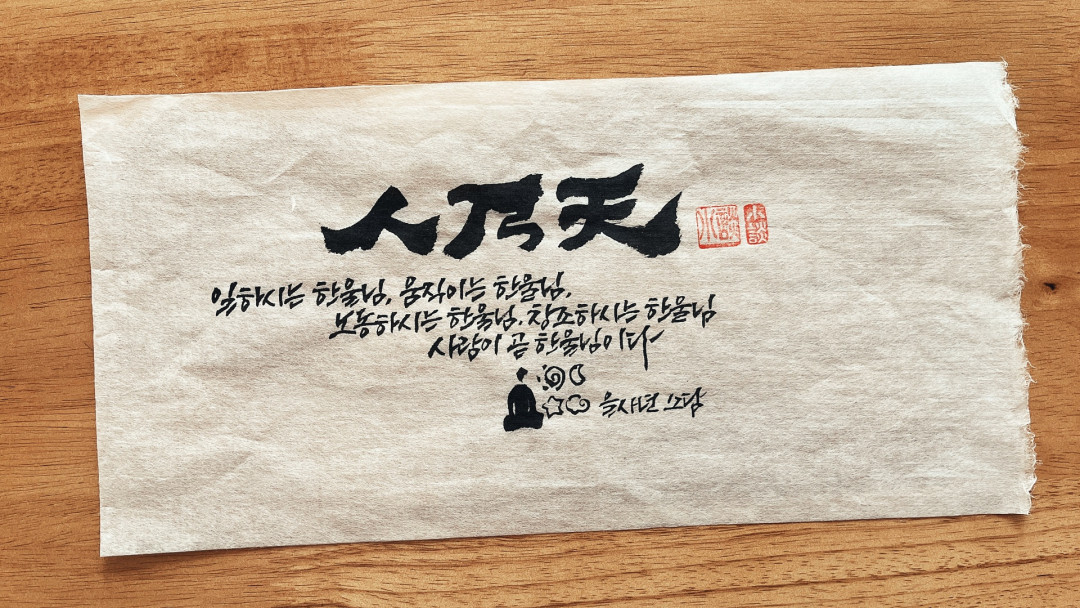 人乃天
일하시는 한울님, 움직이는 한울님,
노동하시는 한울님, 창조하시는 한울님
사람이 곧 한울님이다
을사년 소담